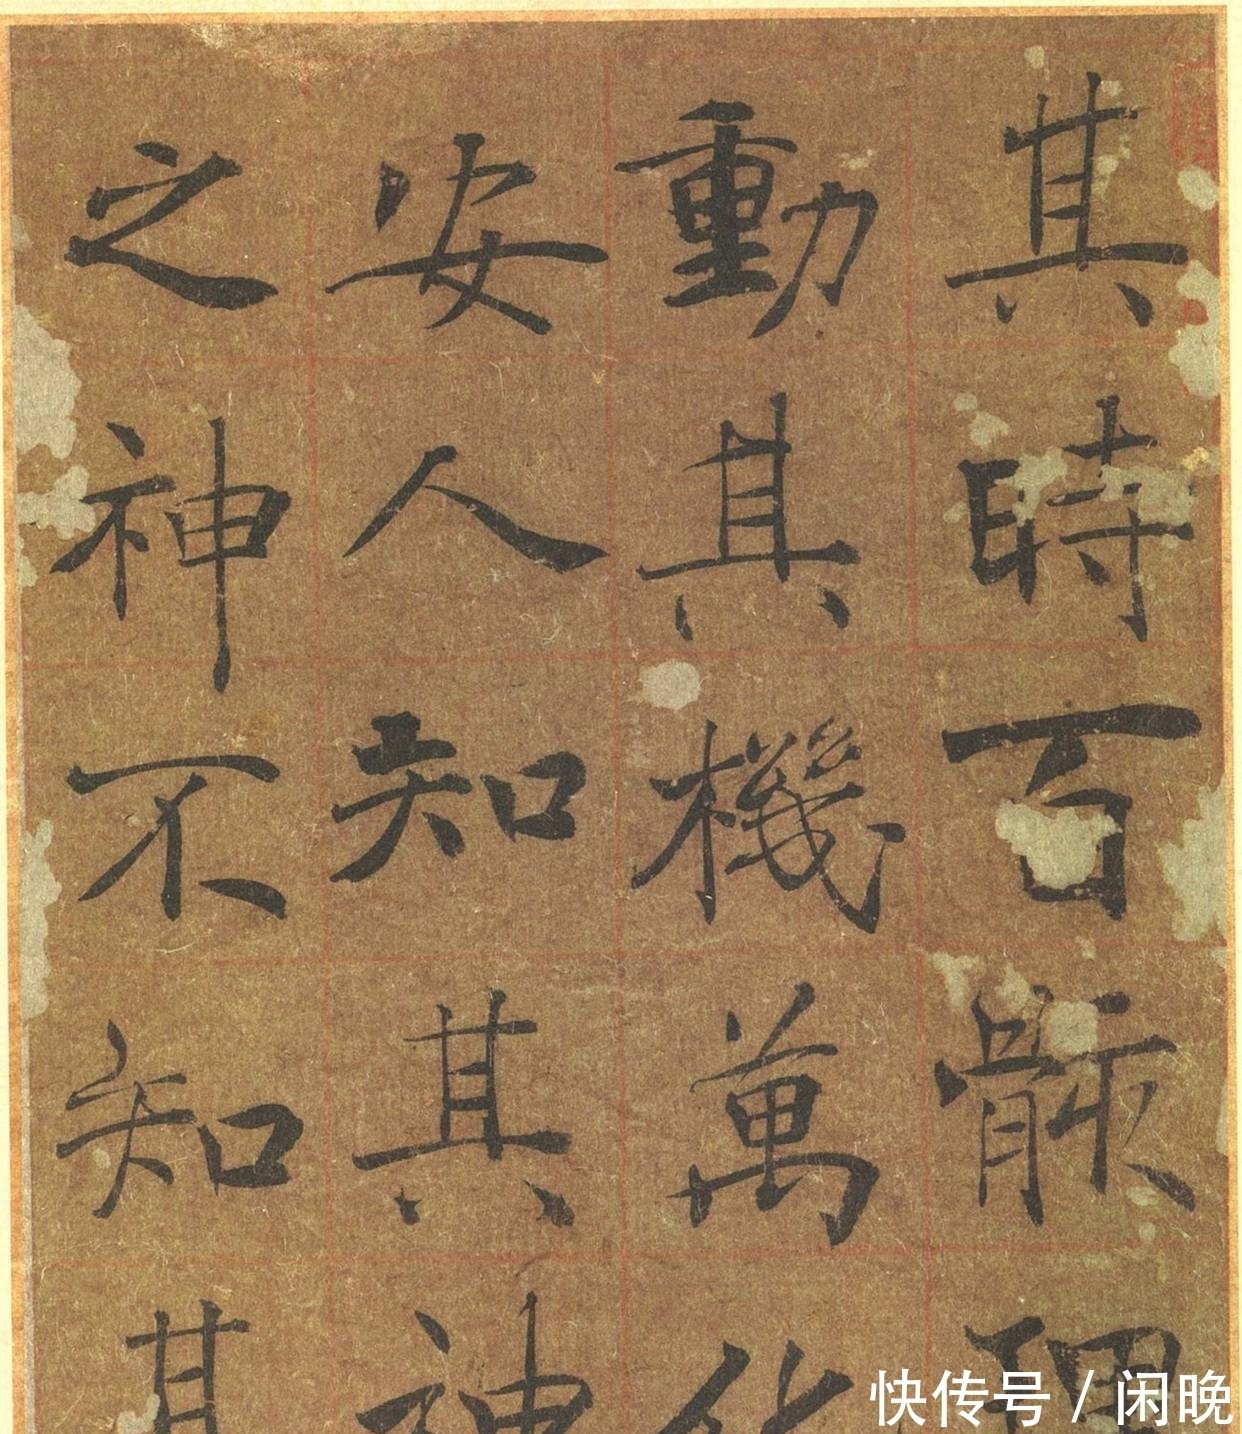 其時百骸理
動其機萬化
安人知其神
之神不知其
快传号 / 闲晚